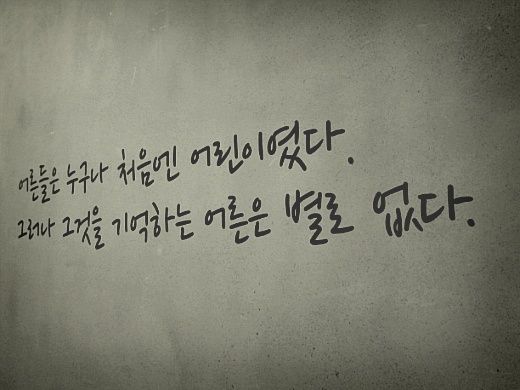 어른들은 누구나 처음엔 어린이였다.
그러나 그것을 기억하는 어른은 별로 없다.